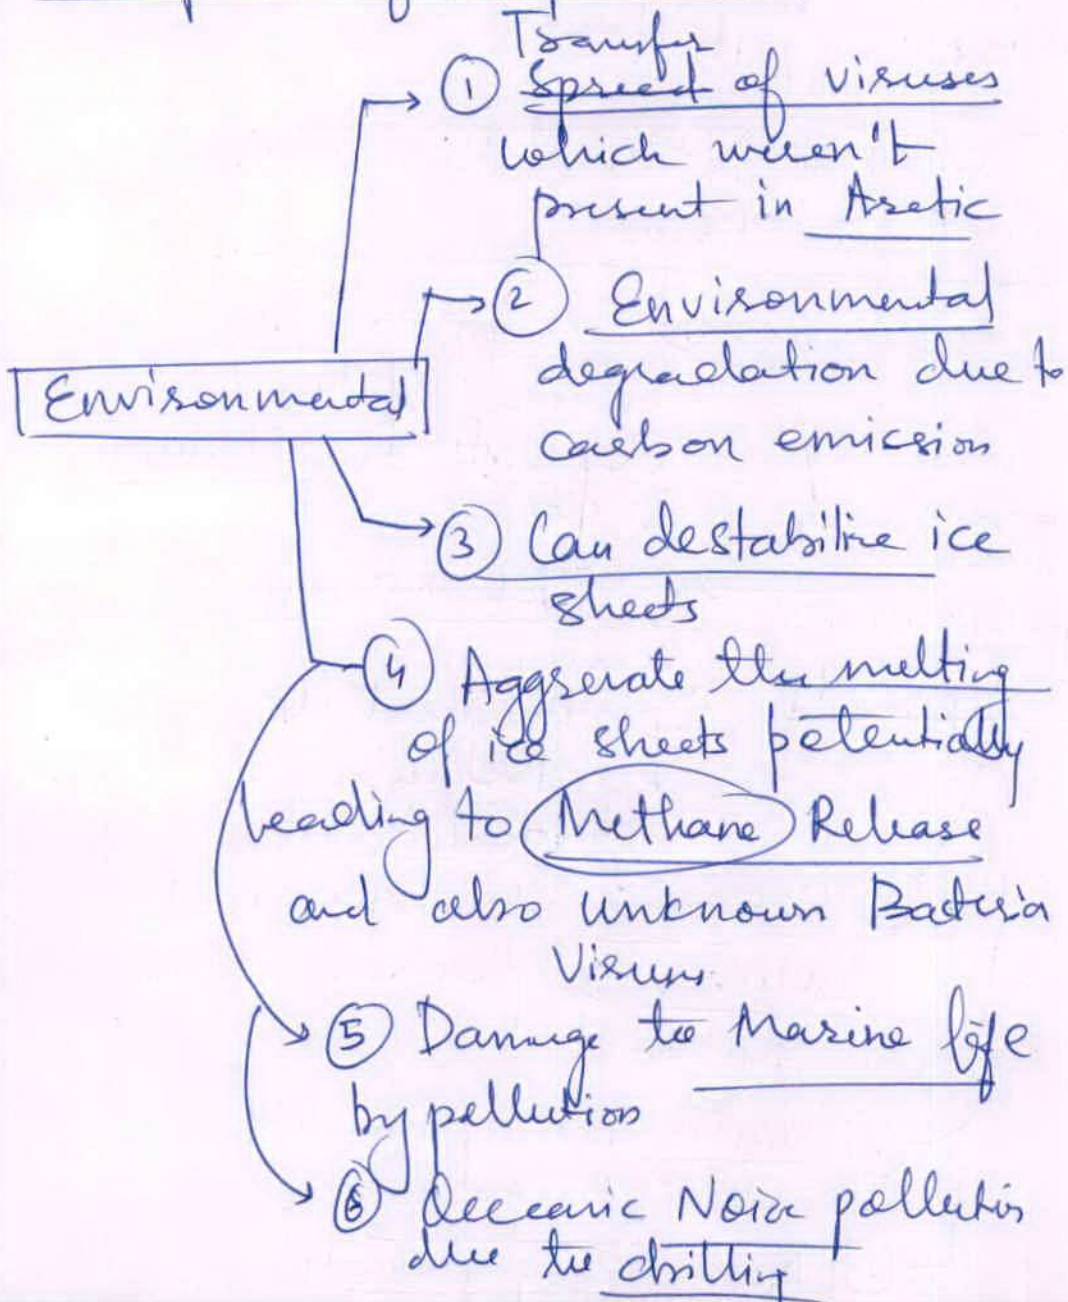 Transfer
① Spread of viruses
which weren't
present in Arctic
② Environmental
degradation due to
carbon emission
Environmental
③ Can destabilize ice
sheets
④ Aggrerate the melting
of ice sheets potentially
leading to Methane Release
and also unknown Bacteria
Viruses
⑤ Damage to Marine life
by pollution
⑥ Oceanic Noise pollution
due to drilling